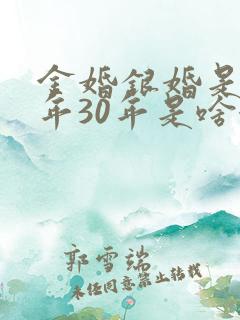 金婚银婚是
年30年是啥
郭雪端
未经同意禁止转载